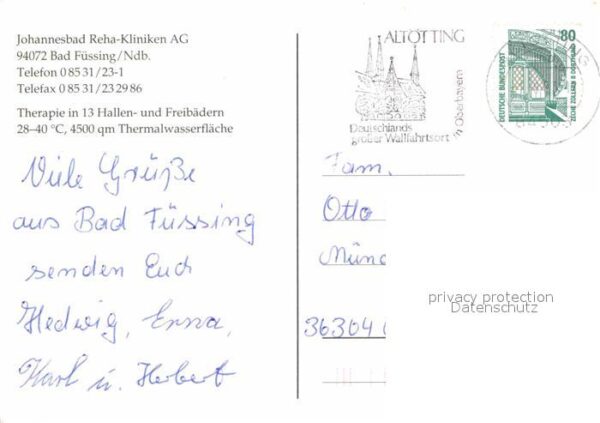 Johannesbad Reha-Kliniken AG
94072 Bad Füssing/Ndb.
Telefon 0 85 31/23-1
Telefax 0 85 31/23 29 86
Therapie in 13 Hallen- und Freibädern
28–40 °C, 4500 qm Thermalwasserfläche
Viele Grüße
aus Bad Füssing
senden Euch
Hedwig, Erna,
Karl u. Herbert
ALTÖTTING
Deutschlands
großer Wallfahrtsort
in Oberbayern
80
DEUTSCHE BUNDESPOST
ZECHE ZOLLERN II DORTMUND
Fam.
Otto
Münc
36304
privacy protection
Datenschutz